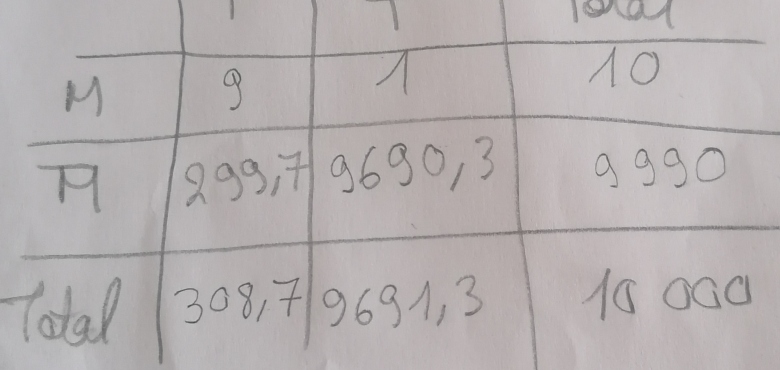 Total
M 9 1 10
M̅ 299,7 9690,3 9990
Total 308,7 9691,3 10 000